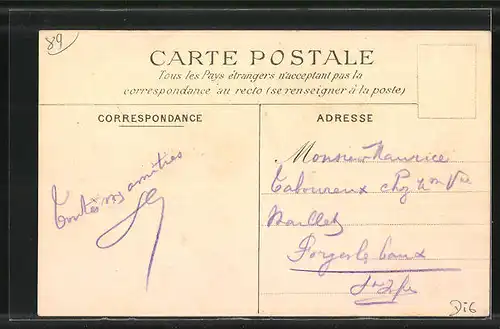 89
CARTE POSTALE
Tous les Pays étrangers n'acceptant pas la
correspondance au recto (se renseigner à la poste)
CORRESPONDANCE
ADRESSE
Toutes nos amitiés
Monsieur Maurice
Taboureux Chez Mme Vve
Maillet
Forges les bains